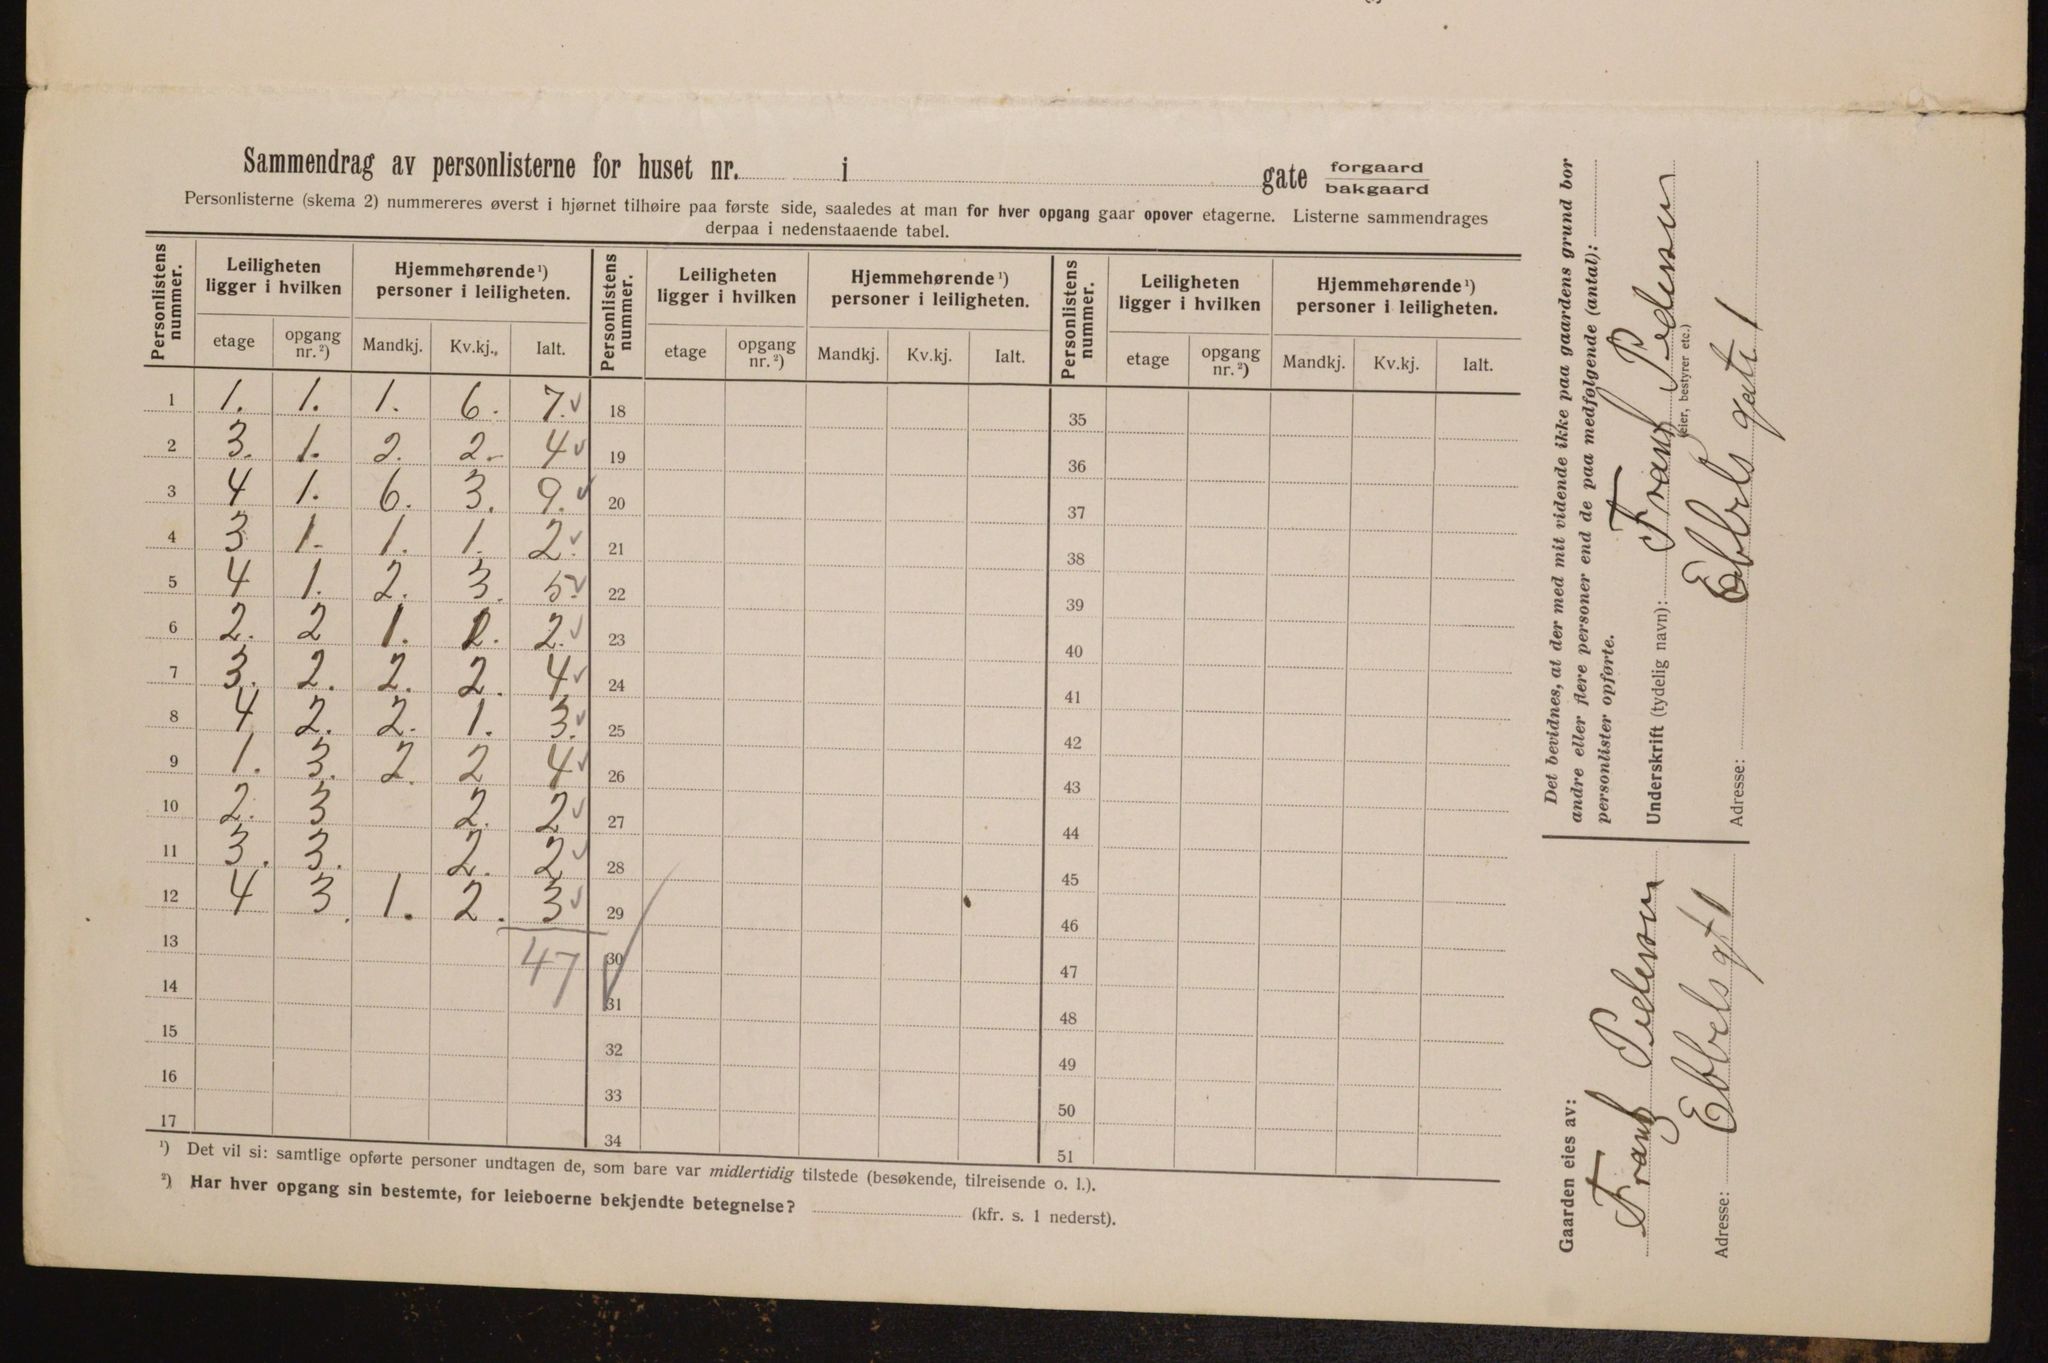 Sammendrag av personlisterne for huset nr. i gate forgaard bakgaard
Personlisterne (skema 2) nummereres øverst i hjørnet tilhøire paa første side, saaledes at man for hver opgang gaar opover etagerne. Listerne sammendrages
derpaa i nedenstaaende tabel.
Personlistens nummer. Leiligheten ligger i hvilken Hjemmehørende¹) personer i leiligheten. Personlistens nummer. Leiligheten ligger i hvilken Hjemmehørende¹) personer i leiligheten. Personlistens nummer. Leiligheten ligger i hvilken Hjemmehørende¹) personer i leiligheten.
etage opgang nr.²) Mandkj. Kv.kj., Ialt. etage opgang nr.²) Mandkj. Kv.kj. Ialt. etage opgang nr.²) Mandkj. Kv.kj. Ialt.
1 1. 1. 1. 6. 7. ✓ 18 35
2 3. 1. 2. 2. 4 ✓ 19 36
3 4 1. 6. 3. 9. ✓ 20 37
4 3 1. 1. 1. 2. ✓ 21 38
5 4 1. 2. 3. 5. ✓ 22 39
6 2. 2 1. 1. 2. ✓ 23 40
7 3. 2. 2. 2. 4 ✓ 24 41
8 4 2. 2. 1. 3. ✓ 25 42
9 1. 3. 2. 2 4 ✓ 26 43
10 2. 3 2. 2 ✓ 27 44
11 3. 3. 2. 2 ✓ 28 45
12 4 3. 1. 2. 3 ✓ 29 46
13 47 30 ✓ 47
14 31 48
15 32 49
16 33 50
17 34 51
¹) Det vil si: samtlige opførte personer undtagen de, som bare var midlertidig tilstede (besøkende, tilreisende o. l.).
²) Har hver opgang sin bestemte, for leieboerne bekjendte betegnelse? (kfr. s. 1 nederst).
Det bevidnes, at der med mit vidende ikke paa gaardens grund bor
andre eller flere personer end de paa medfølgende (antal):
personlister opførte.
Underskrift (tydelig navn): Frantz Pedersen
(eier, bestyrer etc.)
Adresse: Ebbels gate 1
Gaarden eies av:
Frantz Pedersen
Adresse: Ebbels gt 1